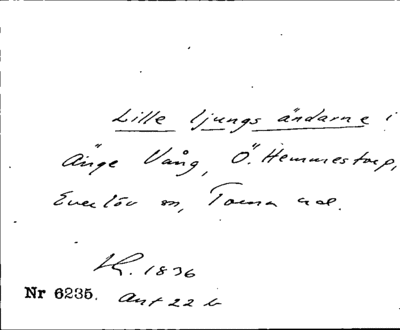 Lille ljungs ändarne i
Änge Vång, Ö. Hemmestorp,
Everlöv sn, Torna hd.
LK. 1836
Nr 6235. Ant 22 b